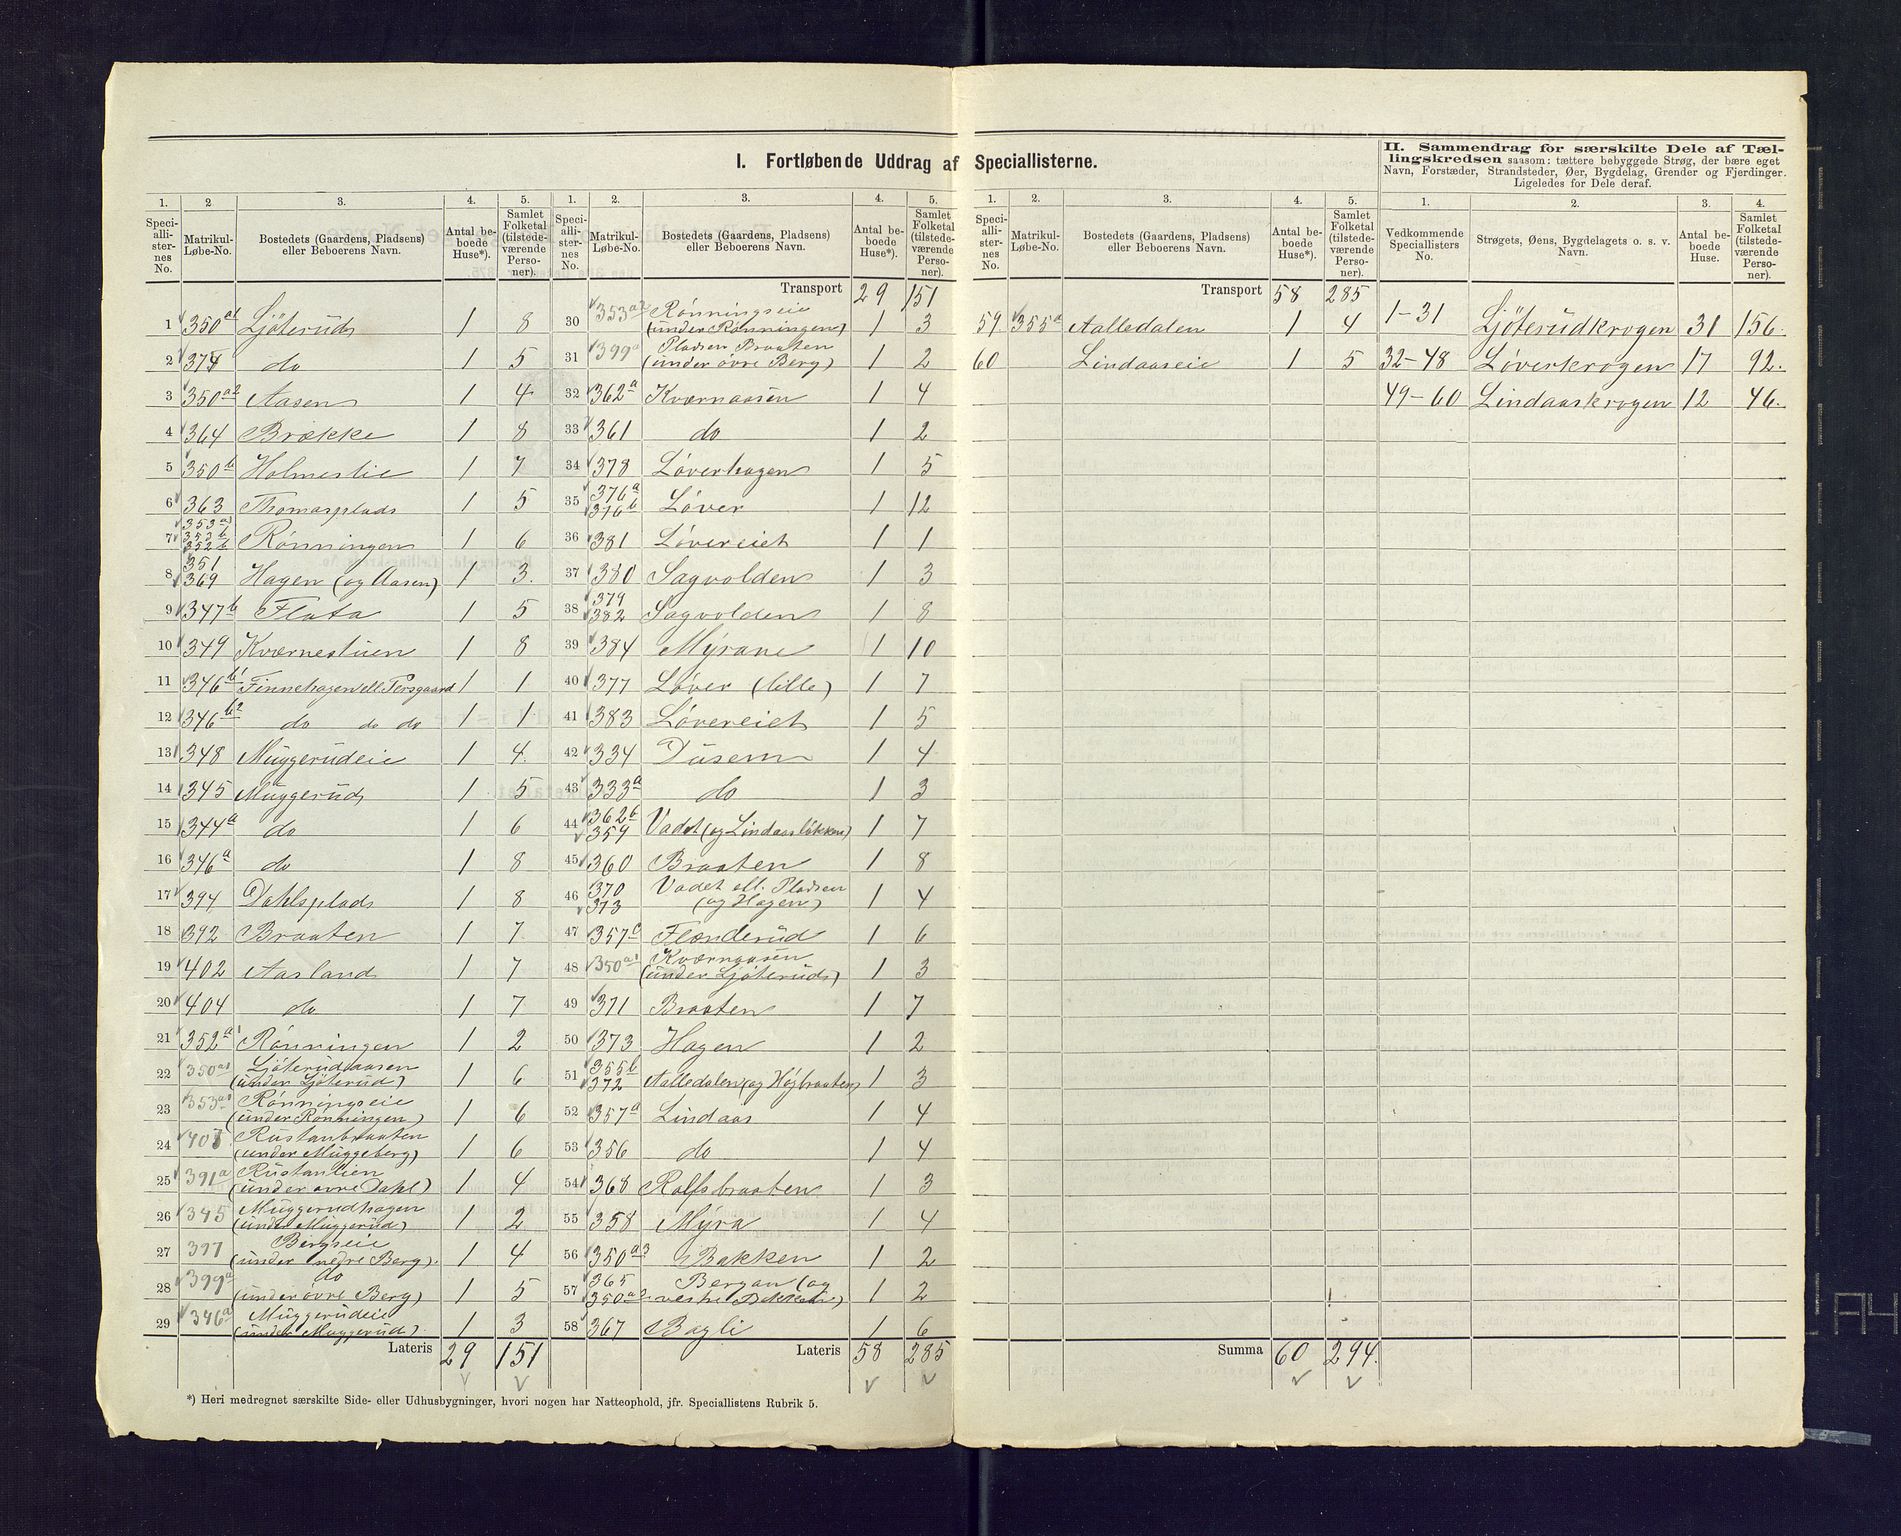 I. Fortløbende Uddrag af Speciallisterne.
1. 2 3. 4. 5.
Speciallisternes No. Matrikul-Løbe-No. Bostedets (Gaardens, Pladsens) eller Beboerens Navn. Antal beboede Huse*). Samlet Folketal (tilstedeværende Personer).
1 350a1 Ljøterud 1 8
2 375 do 1 5
3 350a2 Aasen 1 4
4 364 Brække 1 8
5 350b Holmestie 1 7
6 363 Thomasplads 1 5
7 353a1 353b 352b Rønningen 1 6
8 351 369 Hagen (og Aasen) 1 3
9 347b Flata 1 5
10 349 Kværnestuen 1 8
11 346b1 Finnehagen ell. Persgaard 1 1
12 346b2 do do do 1 1
13 348 Muggerudeie 1 4
14 345 Muggerud 1 5
15 344a do 1 6
16 346a do 1 8
17 394 Dahlsplads 1 8
18 392 Braaten 1 7
19 402 Aasland 1 7
20 404 do 1 7
21 352a1 Rønningen 1 2
22 350a1 Ljøterudaasen (under Ljøterud) 1 6
23 353a1 Rønningseie (under Rønningen) 1 6
24 Rustanbraaten (under Muggeberg) 1 6
25 391a Rustanlien (under øvre Dahl) 1 4
26 345 Muggerudhagen (under Muggerud) 1 2
27 397 Bergseie (under nedre Berg). 1 4
28 399a do (under øvre Berg) 1 5
29 346a Muggerudeie (under Muggerud). 1 3
Lateris 29 151
*) Heri medregnet særskilte Side- eller Udhusbygninger, hvori nogen har Natteophold, jfr. Speciallistens Rubrik 5.
1. 2. 3. 4. 5.
Speciallisternes No. Matrikul-Løbe-No. Bostedets (Gaardens, Pladsens) eller Beboerens Navn. Antal beboede Huse*). Samlet Folketal (tilstedeværende Personer).
Transport 29 151
30 353a2 Rønningseie (under Rønningen) 1 3
31 399a Pladsen Braaten (under øvre Berg) 1 2
32 362a Kværnaasen 1 4
33 361 do 1 2
34 378 Løverhagen 1 5
35 376a 376b Løver 1 12
36 381 Løvereiet 1 1
37 380 Sagvolden 1 3
38 379 382 Sagvolden 1 8
39 384 Myrane 1 10
40 377 Løver (lille) 1 7
41 383 Løvereiet 1 5
42 334 Dusem 1 4
43 333a do 1 3
44 362b 359 Vadet (og Lindaasløkken) 1 7
45 360 Braaten 1 8
46 370 373 Vadet ell. Pladsen (og Hagen) 1 4
47 357c Flonderud 1 6
48 350a1 Kværnaasen (under Ljøterud) 1 3
49 371 Braaten 1 7
50 373 Hagen 1 2
51 355b 372 Aalledalen (og Højbraaten) 1 3
52 357a Lindaas 1 4
53 356 do 1 4
54 368 Rolfsbraaten 1 3
55 358 Myra 1 4
56 350a3 Bakken 1 2
57 365 350a2 Bergan (og vestre Bakken) 1 2
58 367 Bagli 1 6
Lateris 58 285
1. 2. 3. 4. 5.
Speciallisternes No. Matrikul-Løbe-No. Bostedets (Gaardens, Pladsens) eller Beboerens Navn. Antal beboede Huse*). Samlet Folketal (tilstedeværende Personer).
Transport 58 285
59. 355a Aalledalen 1 4
60 Lindaaseie 1 5
Summa 60 294.
II. Sammendrag for særskilte Dele af Tællingskredsen saasom: tættere bebyggede Strøg, der bære eget Navn, Forstæder, Strandsteder, Øer, Bygdelag, Grender og Fjerdinger. Ligeledes for Dele deraf.
1. 2. 3. 4.
Vedkommende Speciallisters No. Strøgets, Øens, Bygdelagets o. s. v. Navn. Antal beboede Huse. Samlet Folketal (tilstedeværende Personer).
1-31 Ljøterudkrogen 31 156.
32-48 Løverkrogen 17 92.
49-60 Lindaaskrogen 12 46.